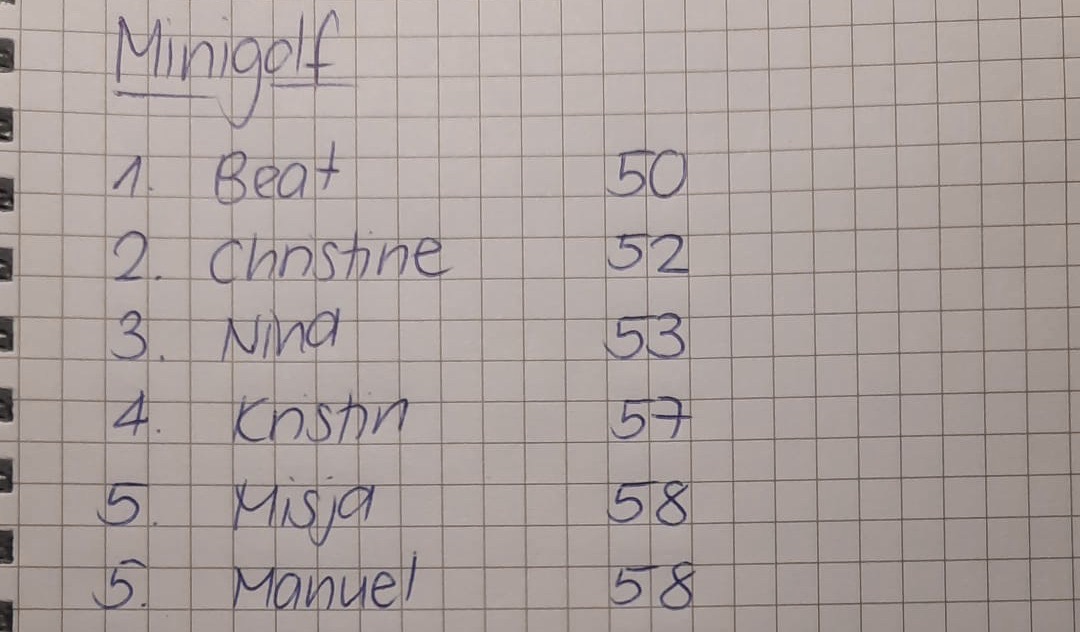 Minigolf
1. Beat 50
2. Christine 52
3. Nina 53
4. Kristin 57
5. Misja 58
5. Manuel 58